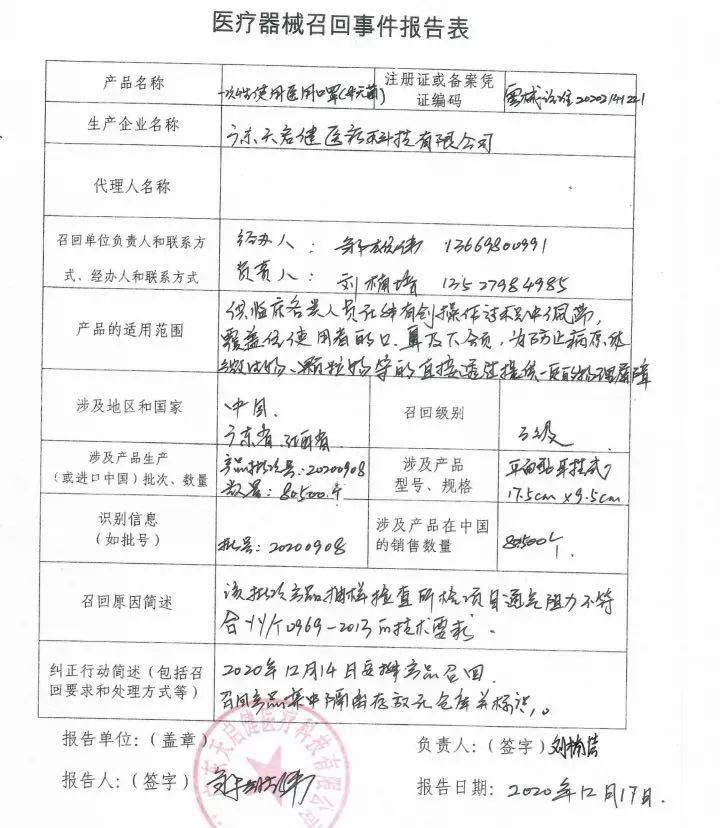 医疗器械召回事件报告表
产品名称 一次性使用医用口罩(非无菌) 注册证或备案凭证编码 粤械注准20202141221
生产企业名称 广东天启健医疗科技有限公司
代理人名称
召回单位负责人和联系方式、经办人和联系方式
经办人: 伟 13669800991
负责人: 刘楠 13527984985
产品的适用范围
供临床各类人员在非有创操作过程中佩带,
覆盖住使用者的口、鼻及下颌,为防止病原体
微生物、颗粒物等的直接透过提供一定的物理屏障
涉及地区和国家
中国.
广东省.江西省
召回级别
三级
涉及产品生产
(或进口中国)批次、数量
产品批次号:20200908
数量:80500个
涉及产品
型号、规格
平面型耳挂式
17.5cm×9.5cm
识别信息
(如批号)
批号:20200908
涉及产品在中国
的销售数量
80500个.
召回原因简述
该批次产品抽样检查所检项目通气阻力不符
合YY/T0969-2013的技术要求.
纠正行动简述(包括召
回要求和处理方式等)
2020年12月14日安排产品召回.
召回产品集中隔离存放于仓库并标识,。
报告单位:(盖章)
负责人:(签字)刘楠
报告人:(签字) 伟
报告日期: 2020年12月17日.
广东天启健医疗科技有限公司